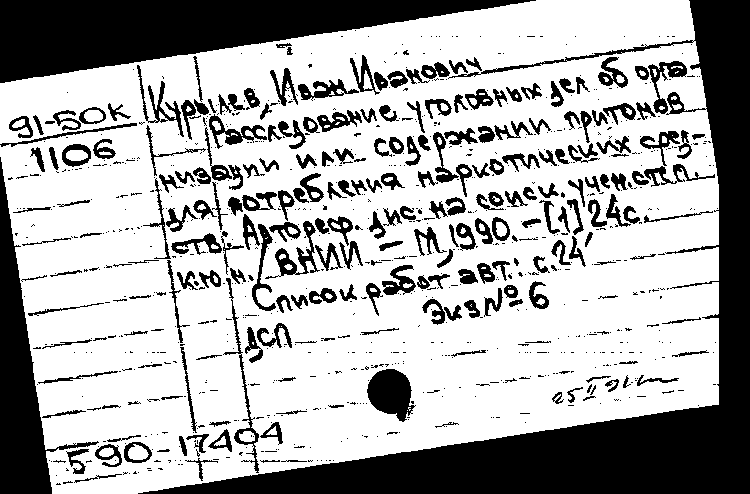 91-50к
1106
Курылев, Иван Иванович
Расследование уголовных дел об орга-
низации или содержании притонов
для потребления наркотических сред-
ств: Автореф. дис. на соиск. учен. степ.
к.ю.н. / ВНИИ. — М, 1990. — [1] 24с.
Список работ авт.: с. 24
Экз № 6
ДСП
25 II 91
590-17404